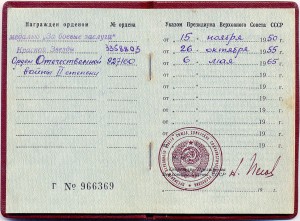 Награжден ордена
№ ордена
медалью „За боевые заслуги"
Красная Звезда 3358803
Орден Отечественной 827100
войны II степени
Г № 966369
Указом Президиума Верховного Совета СССР
от „ 15 " ноября 1950
от „ 26 " октября 1955
от „ 6 " мая 1965
от „ " 19
от „ " 19
от „ " 19
от „ " 19